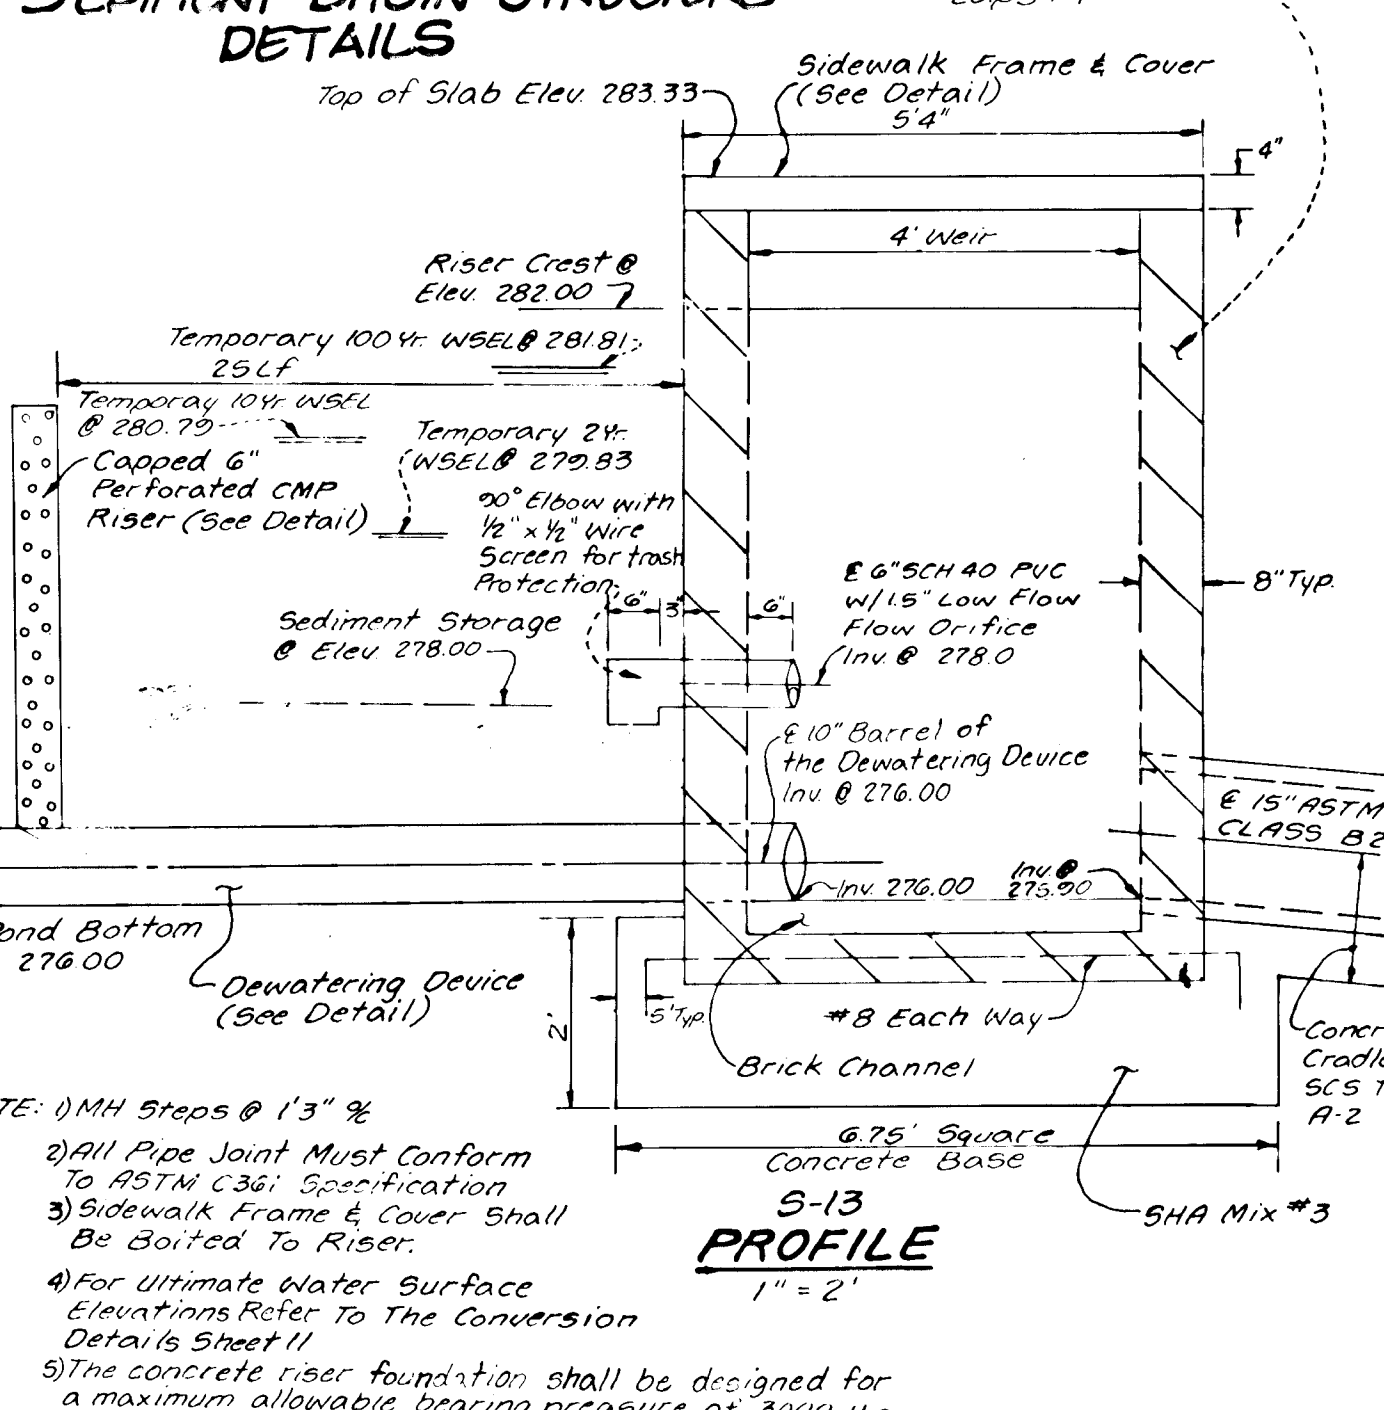 SEDIMENT BASIN STRUCTURE
DETAILS
Top of Slab Elev. 283.33
Sidewalk Frame & Cover
(See Detail)
5'4"
4"
4' Weir
Riser Crest @
Elev. 282.00
Temporary 100 Yr. WSEL@ 281.81
25 Lf
Temporay 10 Yr. WSEL
@ 280.79
Temporary 2 Yr.
WSEL@ 279.83
Capped 6"
Perforated CMP
Riser (See Detail)
90° Elbow with
1/2" x 1/2" Wire
Screen for trash
Protection
6"
3"
6"
℄ 6" SCH 40 PVC
W/1.5" Low Flow
Flow Orifice
Inv. @ 278.0
8" Typ.
Sediment Storage
@ Elev. 278.00
℄ 10" Barrel of
the Dewatering Device
Inv. @ 276.00
℄ 15" ASTM
CLASS B2
Inv. 276.00
Inv. @
275.90
Pond Bottom
276.00
Dewatering Device
(See Detail)
2'
5' Typ.
#8 Each Way
Brick Channel
Concr
Cradle
SCS T
A-2
6.75' Square
Concrete Base
SHA Mix #3
S-13
PROFILE
1" = 2'
TE: 1) MH Steps @ 1'3" %
2) All Pipe Joint Must Conform
To ASTM C361 Specification
3) Sidewalk Frame & Cover Shall
Be Bolted To Riser.
4) For Ultimate Water Surface
Elevations Refer To The Conversion
Details Sheet 11
5) The concrete riser foundation shall be designed for
a maximum allowable bearing pressure of 3000